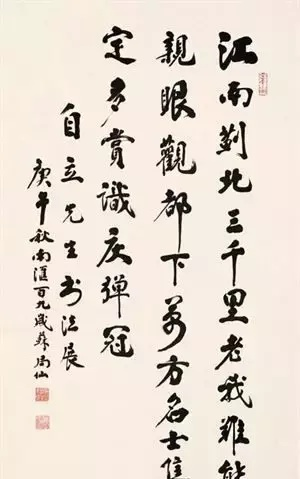 江南薊北三千里老我難能
親眼觀都下萬方名士集
定多賞識庆彈冠
自立先生书法展
庚午秋南匯百九歲蘇局仙